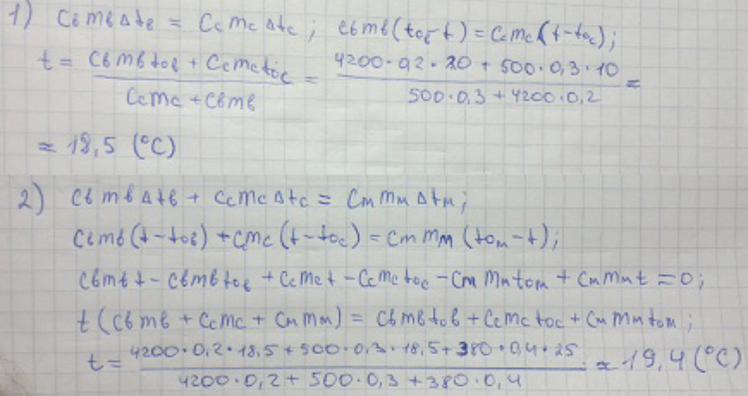 1) cвmвΔtв = CcmcΔtc ; cвmв(t₀в-t) = Ccmc(t-t₀c);
t = (cвmвt₀в + Ccmct₀c)/(Ccmc + cвmв) = (4200·0,2·20 + 500·0,3·10)/(500·0,3 + 4200·0,2) =
≈ 18,5 (°C)
2) cвmвΔtв + CcmcΔtc = CмmмΔtм;
cвmв(t-t₀в) + Ccmc(t-t₀c) = Cмmм(t₀м-t);
cвmвt - cвmвt₀в + Ccmct - Ccmct₀c - Cмmмt₀м + Cмmмt = 0;
t(cвmв + Ccmc + Cмmм) = cвmвt₀в + Ccmct₀c + Cмmмt₀м;
t = (4200·0,2·18,5 + 500·0,3·18,5 + 380·0,4·25)/(4200·0,2 + 500·0,3 + 380·0,4) ≈ 19,4 (°C)